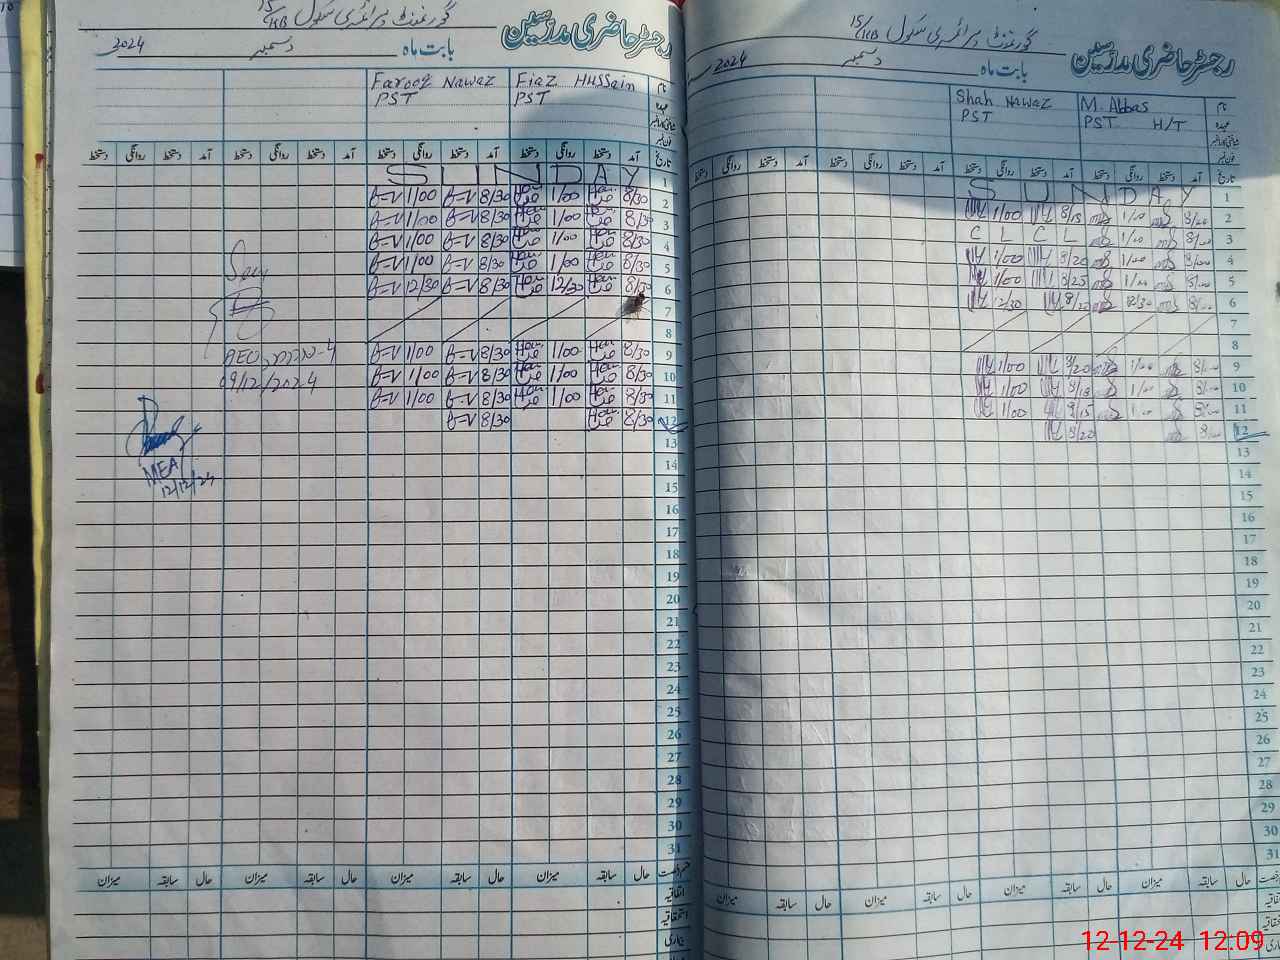 رجسٹر حاضری مدرسین
گورنمنٹ پرائمری سکول 15/KB
بابت ماہ دسمبر 2024
نام
عہدہ
M. Abbas
PST H/T
Shah Nawaz
PST
تاریخ آمد دستخط روانگی دستخط آمد دستخط روانگی دستخط آمد دستخط روانگی دستخط آمد دستخط روانگی دستخط
1 S U N D A Y
2 8/00 1/00 8/15 1/00
3 8/00 1/00 C L C L
4 8/00 1/00 8/20 1/00
5 8/00 1/00 8/25 1/00
6 8/00 12/30 8/20 12/30
7
8
9 8/00 1/00 8/20 1/00
10 8/00 1/00 8/18 1/00
11 8/00 1/00 8/15 1/00
12 8/00 8/20
13
14
15
16
17
18
19
20
21
22
23
24
25
26
27
28
29
30
31
حال سابقہ میزان حال سابقہ میزان حال سابقہ میزان حال سابقہ میزان
رجسٹر حاضری مدرسین
گورنمنٹ پرائمری سکول 15/KB
بابت ماہ دسمبر 2024
نام
عہدہ
Fiaz Hussain
PST
Farooq Nawaz
PST
تاریخ آمد دستخط روانگی دستخط آمد دستخط روانگی دستخط آمد دستخط روانگی دستخط آمد دستخط روانگی دستخط
1 S U N D A Y
2 8/30 1/00 8/30 1/00
3 8/30 1/00 8/30 1/00
4 8/30 1/00 8/30 1/00
5 8/30 1/00 8/30 1/00
6 8/30 12/30 8/30 12/30
7
8
9 8/30 1/00 8/30 1/00
10 8/30 1/00 8/30 1/00
11 8/30 1/00 8/30 1/00
12 8/30 8/30
13
14
15
16
17
18
19
20
21
22
23
24
25
26
27
28
29
30
31
AEO
09/12/2024
MEA
12/12/24
حال سابقہ میزان حال سابقہ میزان حال سابقہ میزان حال سابقہ میزان
اتفاقیہ
استحقاقیہ
بیماری
12-12-24 12:09